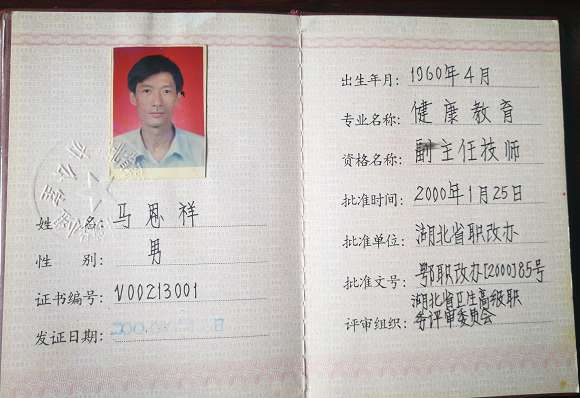 姓 名：马恩祥
性 别：男
证书编号：V00213001
发证日期：
出生年月：1960年4月
专业名称：健康教育
资格名称：副主任技师
批准时间：2000年1月25日
批准单位：湖北省职改办
批准文号：鄂职改办[2000]85号
湖北省卫生高级职
评审组织：务评审委员会